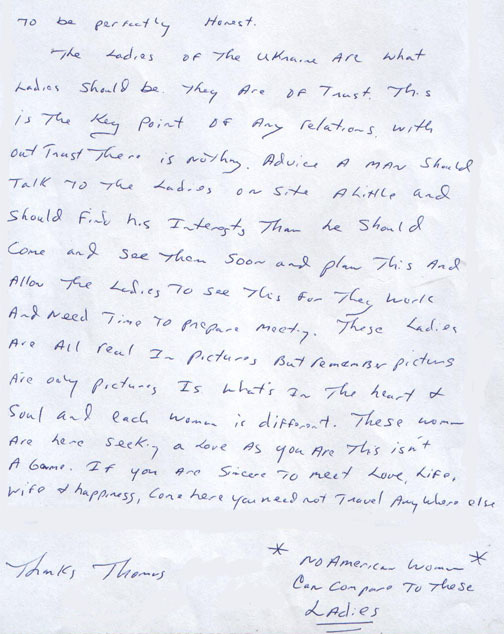 To be perfectly Honest.
The Ladies of The Ukraine Are what
Ladies Should be. They Are of Trust. This
is The Key Point OF Any relations, with
out Trust There is nothing. Advice A MAN Should
Talk To The Ladies on site A little and
Should Find his Interests Than he Should
Come and see Them Soon and plan This And
Allow The Ladies To see This for They work
And Need Time To prepare meeting. These Ladies
Are All real In pictures But remember pictures
Are only pictures Is What's In The heart &
Soul and each Woman is different. These women
Are here seeking a Love As you Are This isn't
A Game. If you Are Sincere To meet Love, Life,
Wife & happiness, Come here you need not Travel Anywhere else
Thanks Thomas
* No American Woman *
Can Compare To These
Ladies